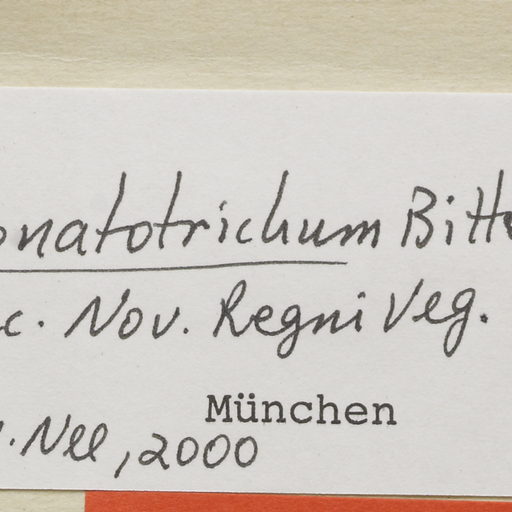 onatotrichum Bitt
c. Nov. Regni Veg.
München
. Nee, 2000